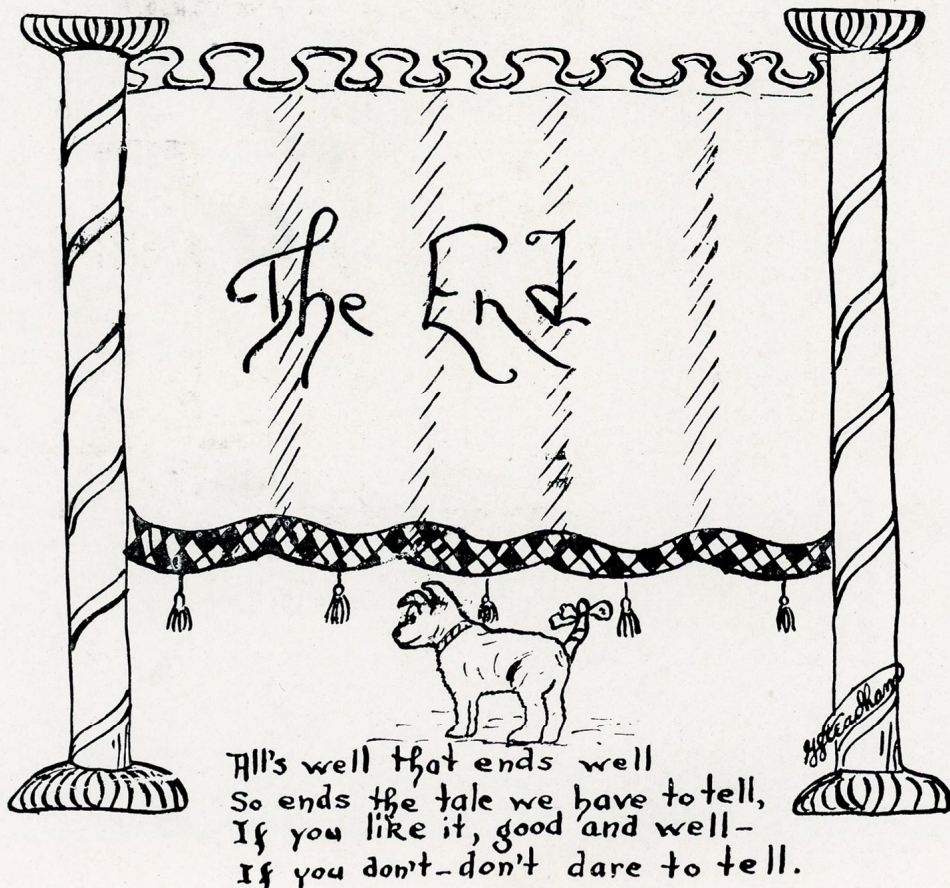 The End
All's well that ends well
So ends the tale we have to tell,
If you like it, good and well-
If you don't-don't dare to tell.